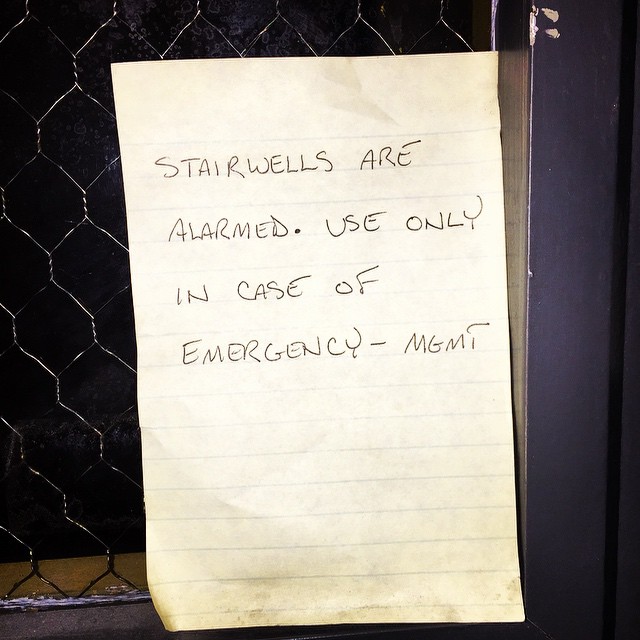 STAIRWELLS ARE
ALARMED. USE ONLY
IN CASE OF
EMERGENCY - MGMT